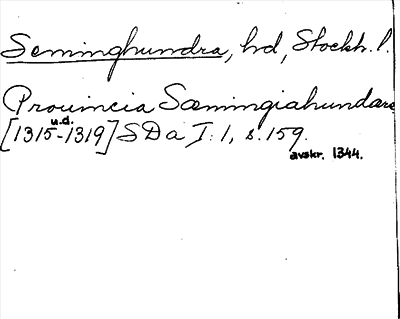 Seminghundra, hd, Stockh. l.
Prouincia Sæmingiahundare
[1315 u.d. -1319] SDa I: 1, s. 159.
avskr. 1344.